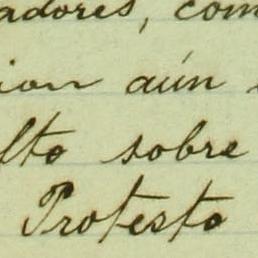 adores, com
ion aún
lto sobre
Protesto